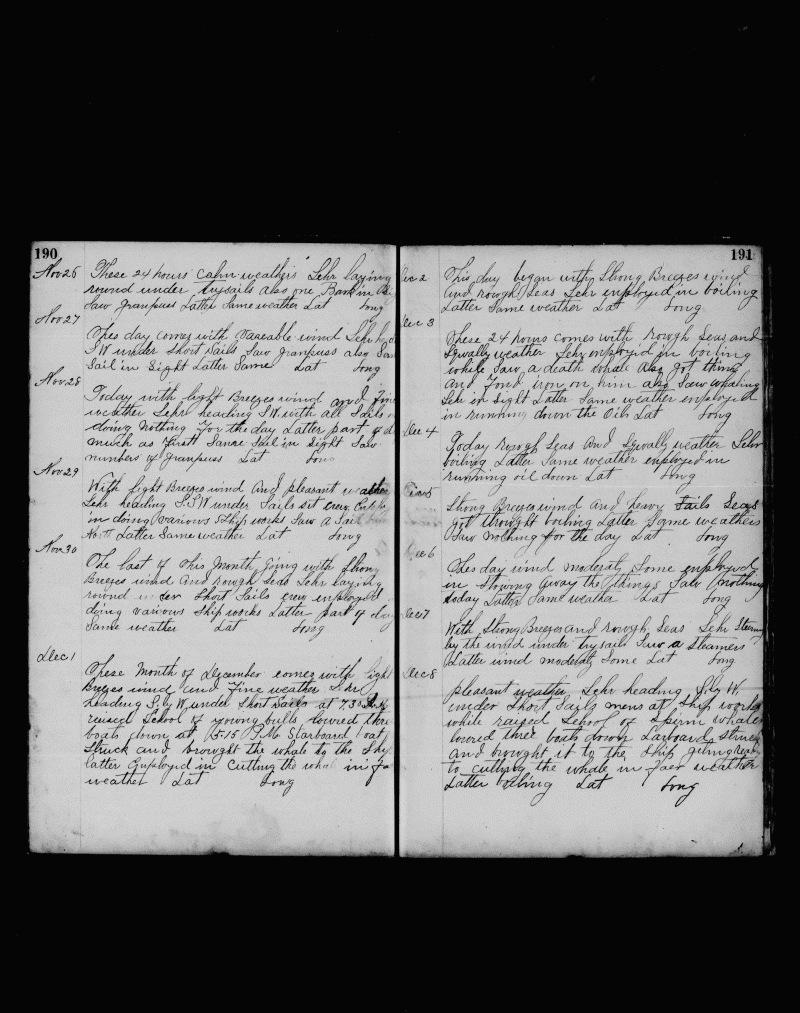 190
Nov 26 These 24 hours calm weather Schr laying
round under trysails also one Bark in
Saw granpuss Latter Same weather Lat Long
Nov 27
Thes day comes with Vareable wind Schr
S.W under Short Sails Saw granpuss also
Sail in Sight Latter Same Lat Long
Nov 28
Today with light Breezes wind and fine
weather Schr heading S.W with all Sails
doing nothing For the day Latter part of
much as First Same Sail in Sight Saw
numbers of granpuss Lat Long
Nov 29
With light Breezes wind And pleasant weather
Schr heading S.S.W under Sails set crew
in doing various Ship works Saw a Sail
North Latter Same weather Lat Long
Nov 30
The last of this Month going with Strong
Breezes wind and rough Seas Schr laying
round under Short Sails crew employed
doing various Ship works Latter part of day
Same weather Lat Long
Dec 1
These Month of December comes with light
Breezes wind and Fine weather Schr
heading S by W under Short Sails at 7.30
raised School of young bulls lowered three
boats down at 5-15 P.M. Starboard boat
Struck and brought the whale to the
latter Employed in Cutting the whal in
weather Lat Long
191
Dec 2 This day began with Strong Breezes wind
and rough Seas Schr employed in boiling
Latter Same weather Lat Long
Dec 3
These 24 hours comes with rough Seas and
Squally weather Schr employed in boiling
while Saw a death whale Also got thing
and Fond iron on him also Saw whaling
Schr in Sight Latter Same weather employed
in running down the Oils Lat Long
Dec 4
Today rough Seas And Squally weather Schr
boiling Latter Same weather employed in
running oil down Lat Long
Dec 5
Strong Breezes wind and heavy Fails Seas
got throught boiling Latter Same weathers
Saw nothing for the day Lat Long
Dec 6
Thes day wind moderate Some employed
in Stowing away the things Saw nothing
today Latter Same weather Lat Long
Dec 7
With Strong Breezes and rough Seas Schr
by the wind under trysails Saw a Steamers
Latter wind moderate Some Lat Long
Dec 8
pleasant weather Schr heading S by W.
under Short Sails mens at Ship works
while raised School of Sperm whale
lowred three boats down Larboard Struck
and brought it to the Ship going
to cutting the whale in Faer weather
Latter boiling Lat Long